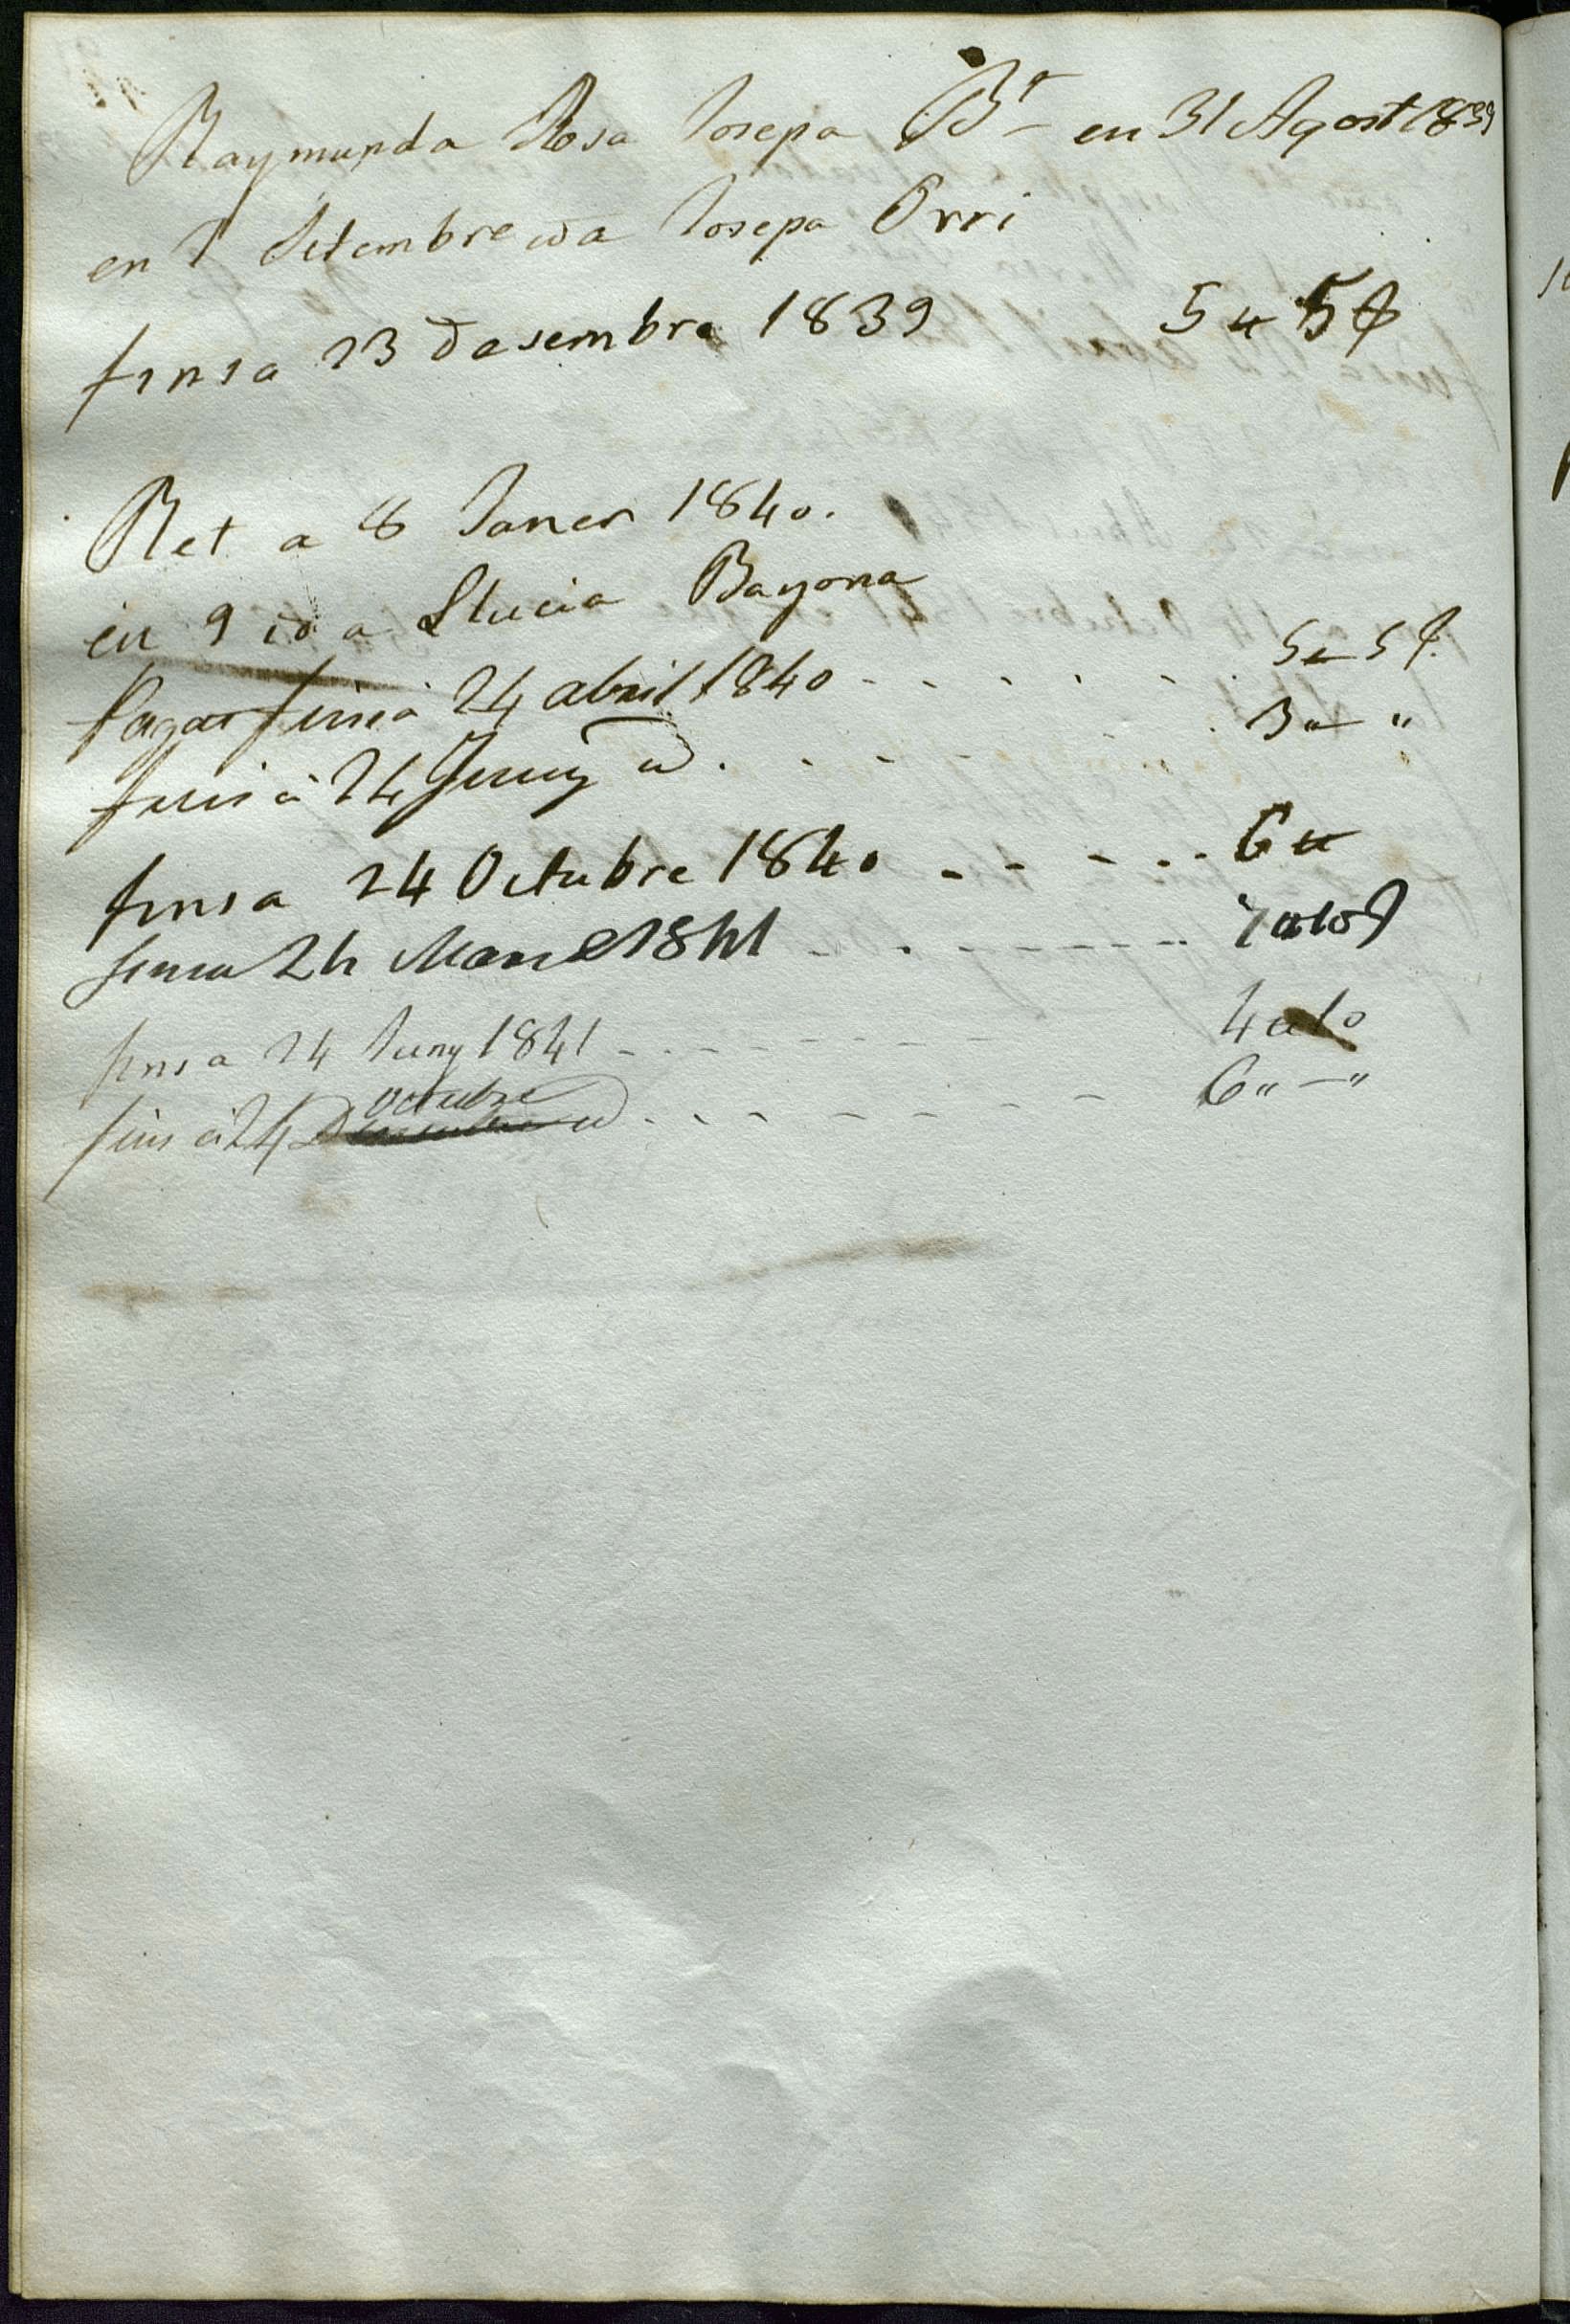 Raymunda Rosa Josepa Bª en 31 Agost 1839
en 1 Setembre id a Josepa Orri
fins a 23 Desembre 1839 5 " 5 #
Ret a 8 Janer 1840.
en 9 id a Llucia Bayona
Pagat fins á 24 abril 1840 - - - - - - 5 " 5 #
fins á 24 Juny id . - - - - 3 " "
fins a 24 Octubre 1840 - - - - - 6 "
fins a 24 Mars 1841 - - - - - - - 7 " 10 #
fins a 24 Juny 1841 - - - - - - - - - 4 " 10
fins á 24 Octubre id - - - - - - - - - 6 " — "